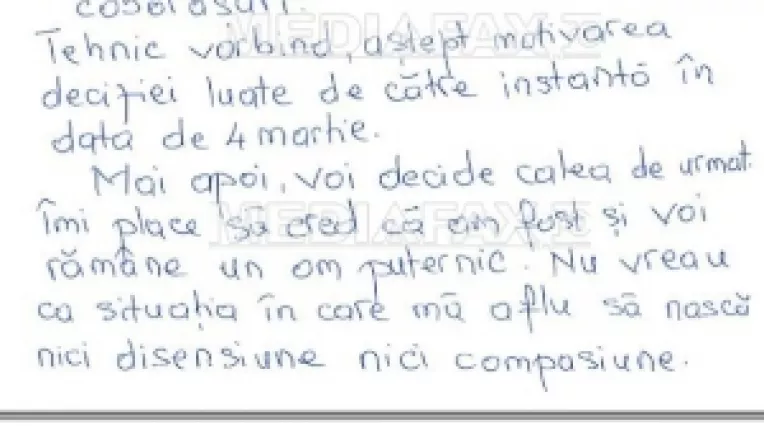 coborâșuri.
Tehnic vorbind, aștept motivarea
deciziei luate de către instanță în
data de 4 martie.
Mai apoi, voi decide calea de urmat.
Îmi place să cred că am fost și voi
rămâne un om puternic. Nu vreau
ca situația în care mă aflu să nască
nici disensiune nici compasiune.
MEDIAFAX
MEDIAFAX